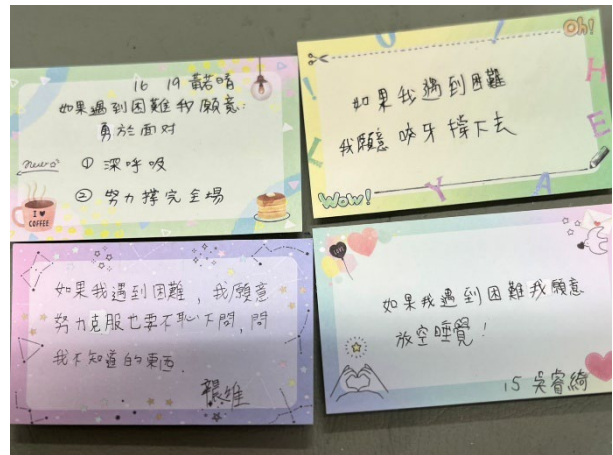 16 19 黃若晴
如果遇到困難我願意
勇於面对
① 深呼吸
② 努力撐完全場
never
I ♥
COFFEE
Oh!
如果我遇到困難
我願意 咬牙撐下去
Wow!
如果我遇到困難,我願意
努力克服也要不恥下問,問
我不知道的東西.
LOVE
如果我遇到困難我願意
放空睡覺!
15 吳睿綺